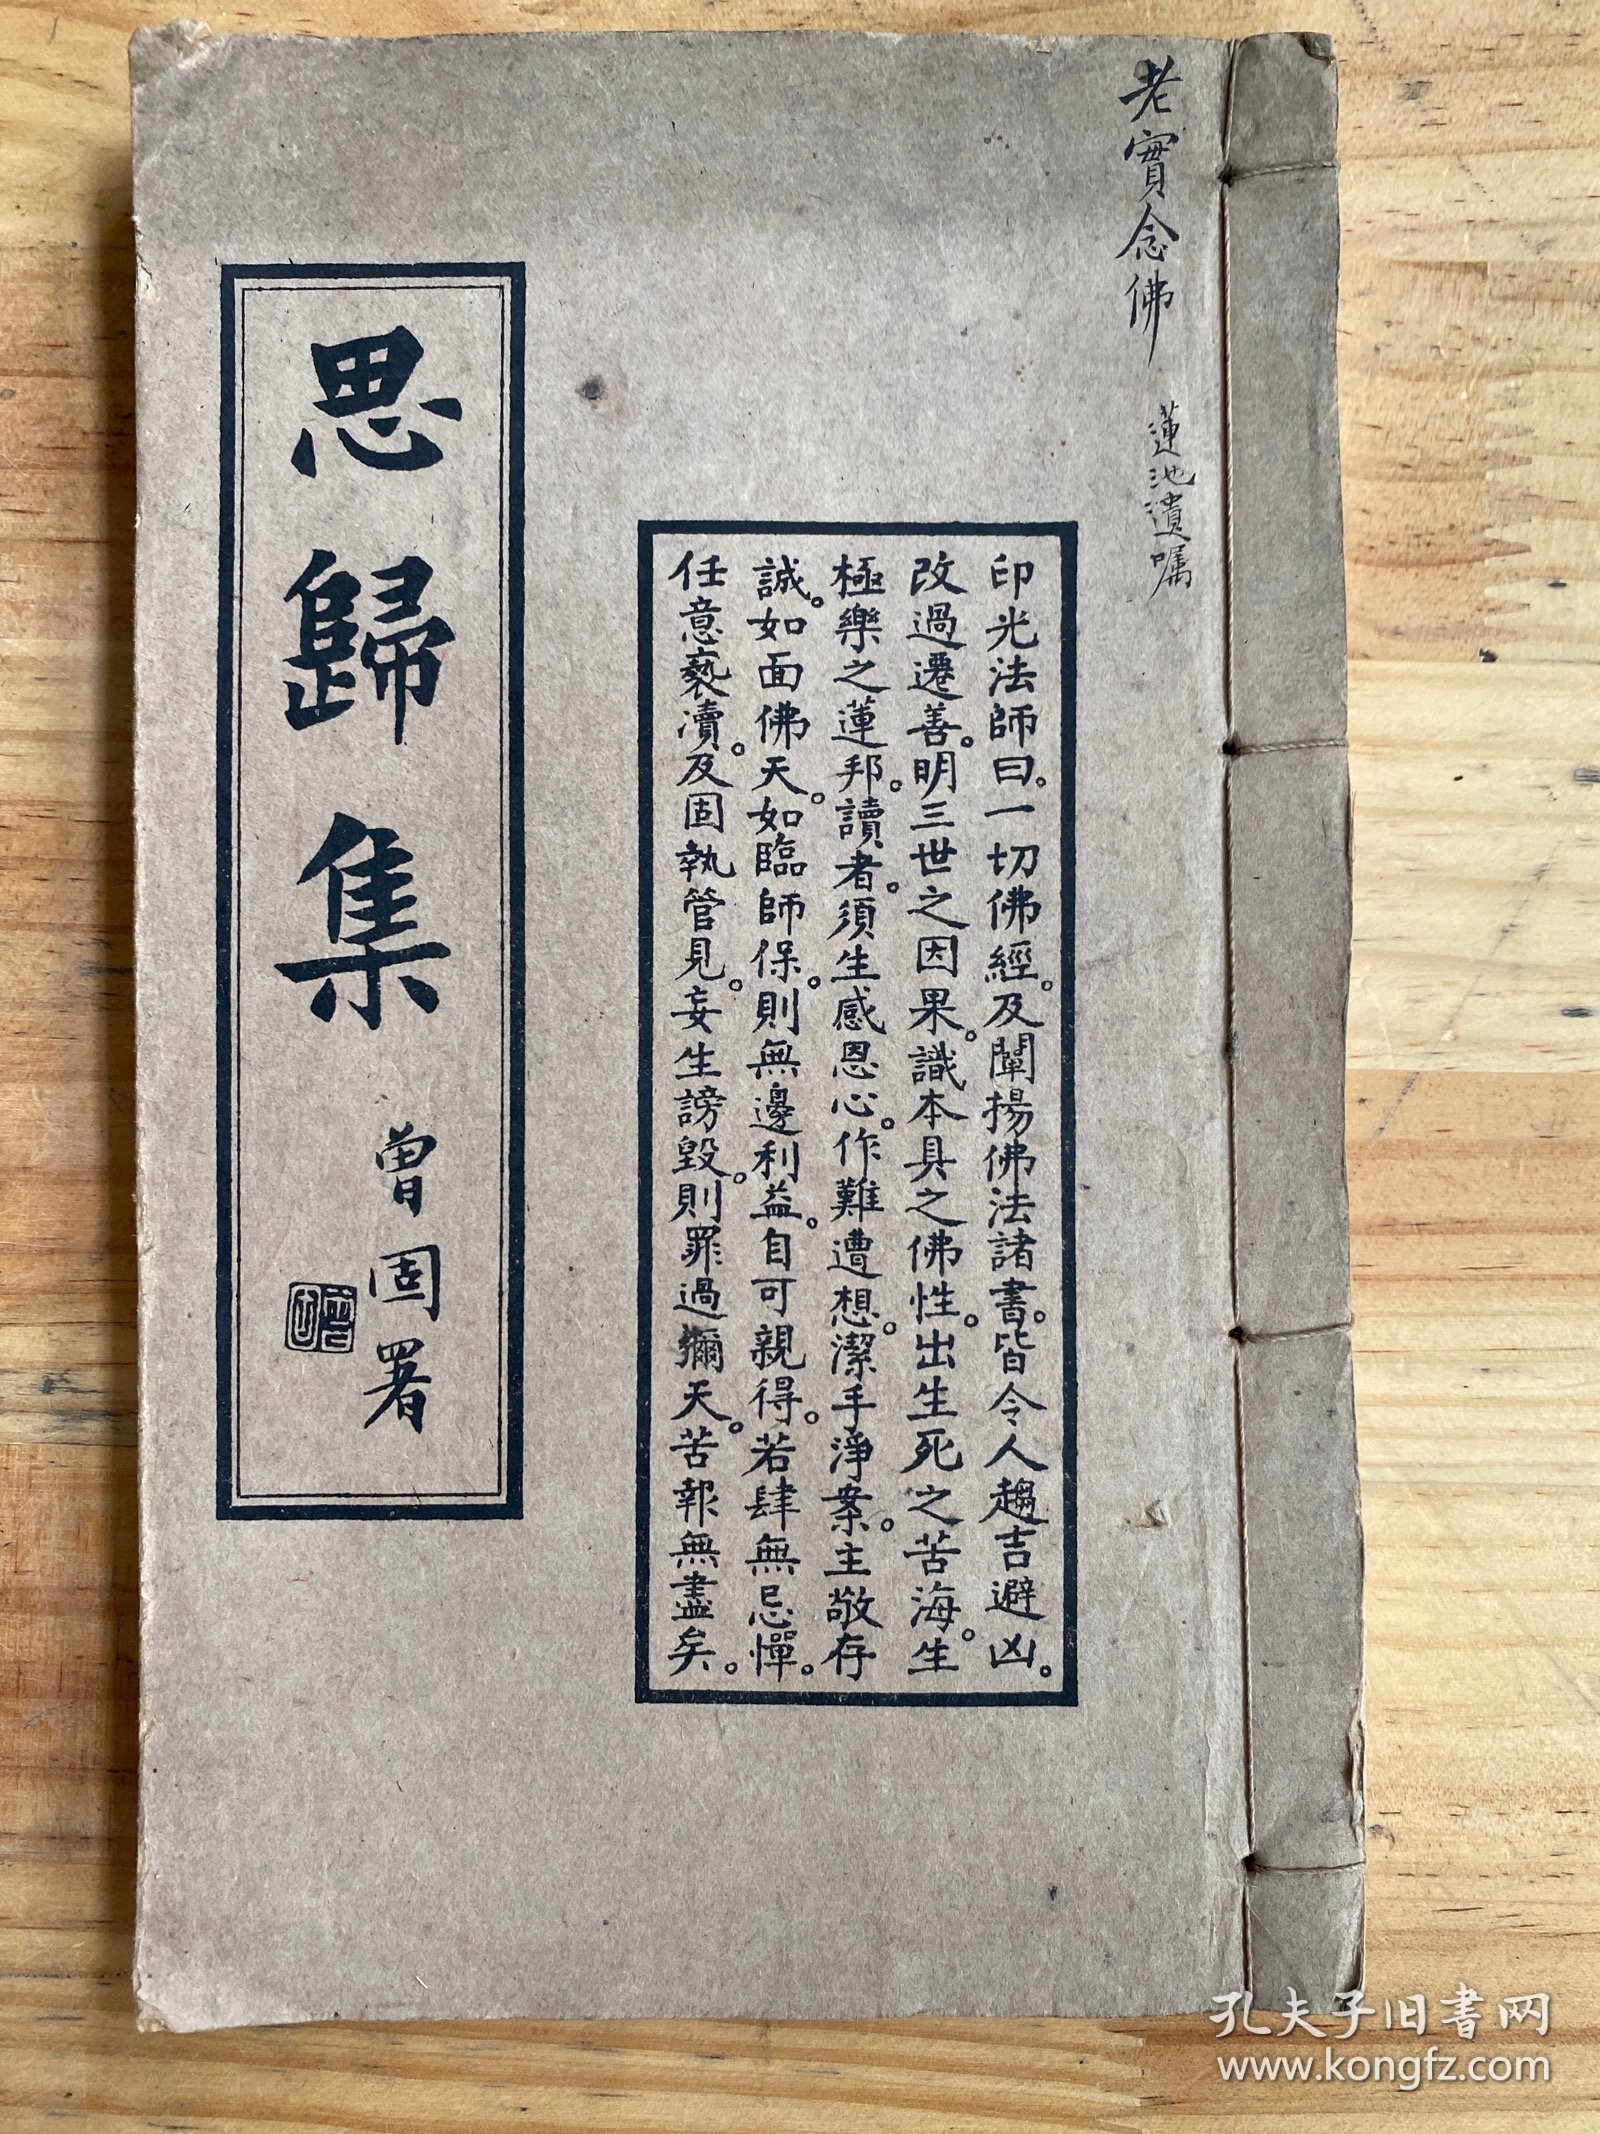 老實念佛
蓮池遺嘱
印光法師曰。一切佛經。及闡揚佛法諸書。皆令人趨吉避凶。
改過遷善。明三世之因果。識本具之佛性。出生死之苦海。生
極樂之蓮邦。讀者。須生感恩心。作難遭想。潔手淨案。主敬存
誠。如面佛天。如臨師保。則無邊利益。自可親得。若肆無忌憚。
任意褻瀆。及固執管見。妄生謗毀。則罪過彌天。苦報無盡矣。
思歸集
曾固署
孔夫子旧书网
www.kongfz.com